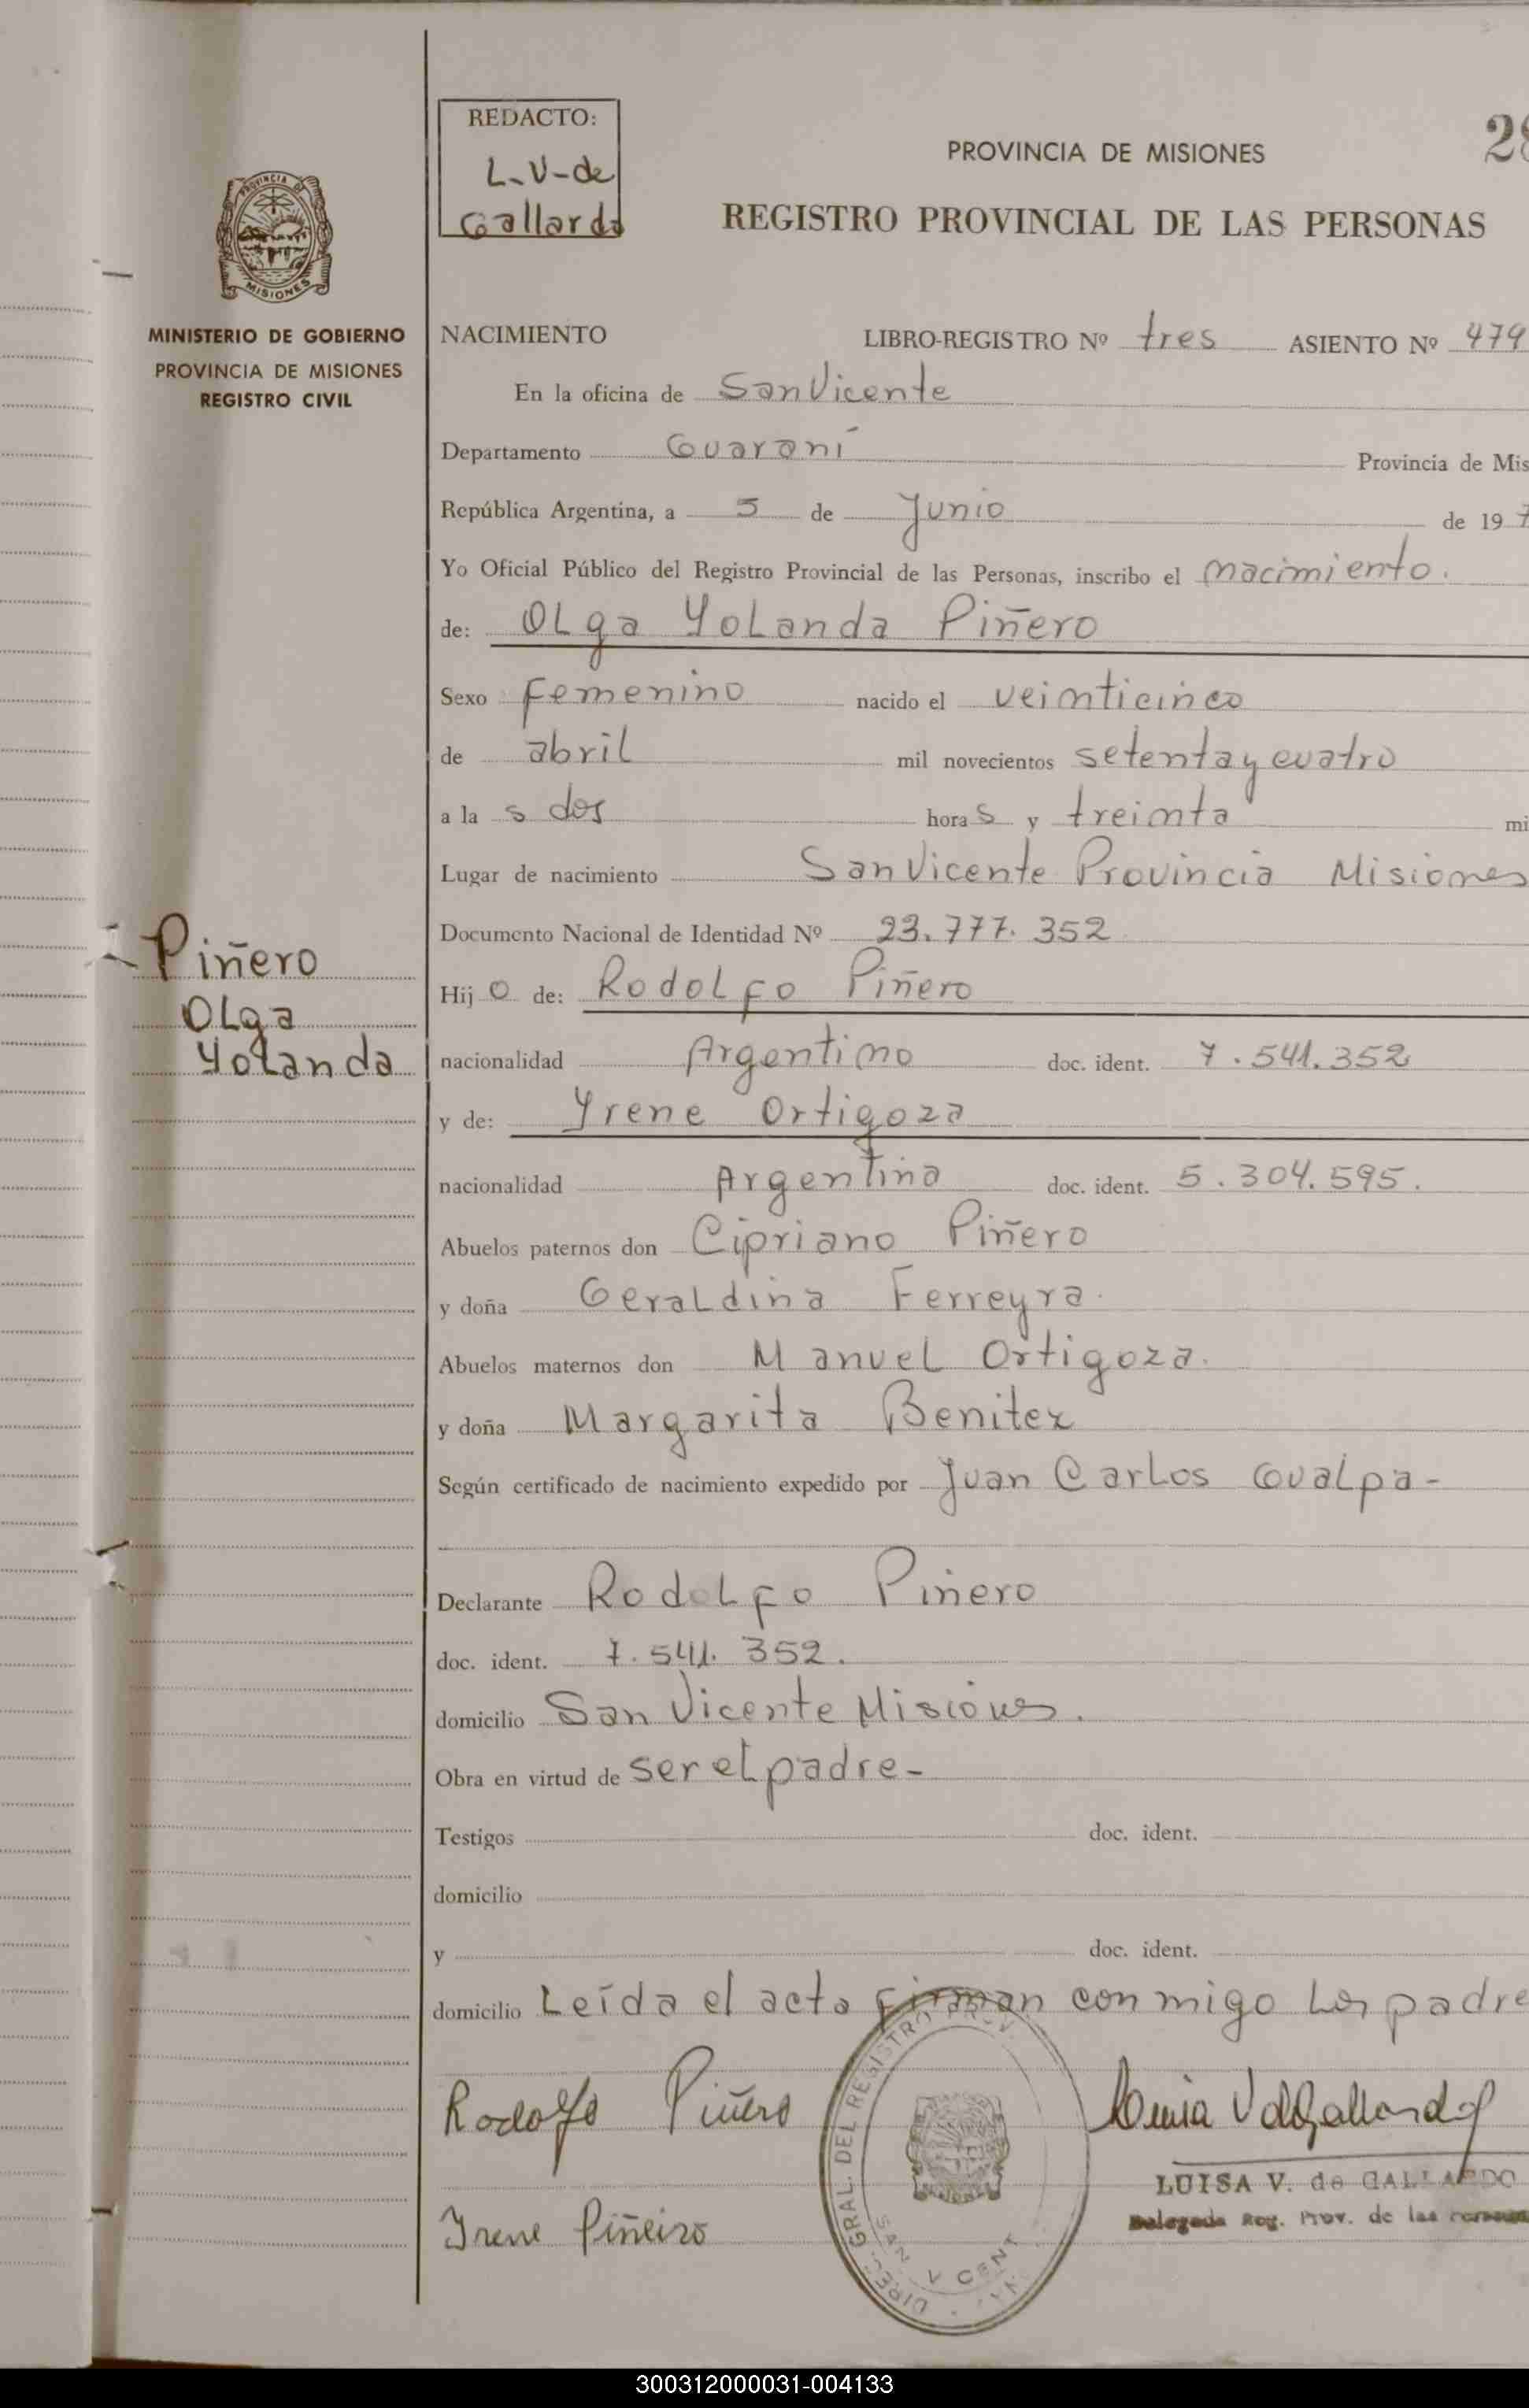 REDACTO:
L-V-de
Gallardo
PROVINCIA DE MISIONES
28
REGISTRO PROVINCIAL DE LAS PERSONAS
PROVINCIA DE
MISIONES
MINISTERIO DE GOBIERNO
PROVINCIA DE MISIONES
REGISTRO CIVIL
NACIMIENTO LIBRO-REGISTRO Nº tres ASIENTO Nº 479
En la oficina de San Vicente
Departamento Guaraní Provincia de Mis
República Argentina, a 5 de Junio de 197
Yo Oficial Público del Registro Provincial de las Personas, inscribo el nacimiento.
de: Olga Yolanda Piñero
Sexo Femenino nacido el veinticinco
de abril mil novecientos setenta y cuatro
a la s dos hora s y treinta mi
Lugar de nacimiento San Vicente Provincia Misiones
Documento Nacional de Identidad Nº 23.777.352
Piñero
Olga
Yolanda
Hij o de: Rodolfo Piñero
nacionalidad Argentino doc. ident. 7.541.352
y de: Yrene Ortigoza
nacionalidad Argentina doc. ident. 5.304.595.
Abuelos paternos don Cipriano Piñero
y doña Geraldina Ferreyra.
Abuelos maternos don Manuel Ortigoza.
y doña Margarita Benitez
Según certificado de nacimiento expedido por Juan Carlos Gualpa-
Declarante Rodolfo Piñero
doc. ident. 7.541.352.
domicilio San Vicente Misiones.
Obra en virtud de ser el padre-
Testigos doc. ident.
domicilio
y doc. ident.
domicilio Leída el acta firman conmigo los padre
Rodolfo Piñero
Irene Piñeiro
DIREC. GRAL. DEL REGISTRO PROV.
SAN VICENT
LUISA V. de GALLARDO
Delegada Reg. Prov. de las Personas
300312000031-004133